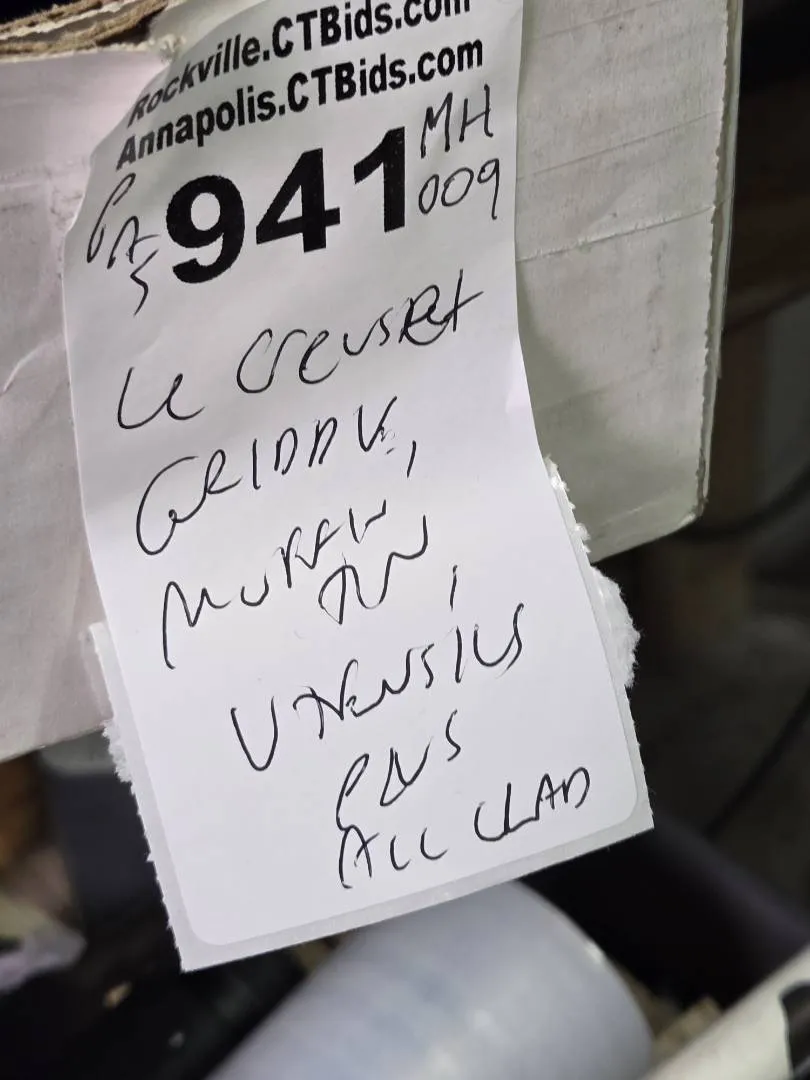 Rockville.CTBids.com
Annapolis.CTBids.com
941
MH
009
Le Creuset
GRIDDLE,
MUFFIN
TIN,
UTENSILS
PLUS
ALL CLAD